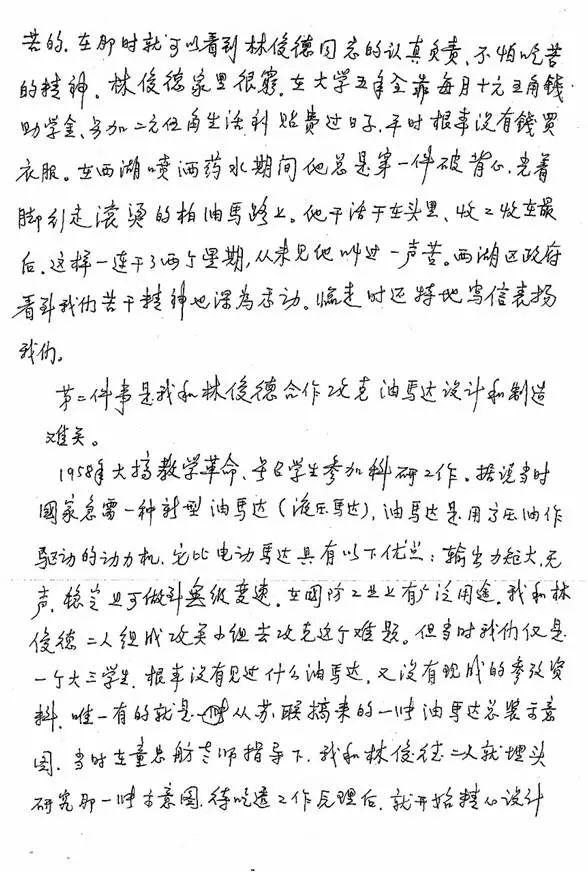 苦的。在那时就可以看到林俊德同志的认真负责、不怕吃苦
的精神。林俊德家里很穷。在大学五年全靠每月十元五角錢
助学金、另加二元伍角生活科贴费过日子,平时根本没有錢買
衣服。在西湖喷洒药水期间他总是第一件破背心,光着
脚引走滚烫的柏油马路上。他干活干在头里、收工收在最
后。这样一连干了两个星期,从未见他叫过一声苦。西湖区政府
看到我们苦干精神也深为感动。临走时还特地写信表扬
我们。
第二件事是我和林俊德合作攻克油马达设计和制造
难关。
1958年大搞教学革命、号召学生参加科研工作。据说当时
國家急需一种新型油马达(液压马达),油马达是用高压油作
驱动的动力机,它比电动马达具有以下优点:输出力矩大,无
声,稳定且可做到無级变速。在國防工业上有广泛用途。我和林
俊德二人组成攻关小组去攻克这个难题。但当时我们仅是
一个大三学生,根本没有见过什么油马达,又没有现成的参考资
料,唯一有的就是从苏联搞来的一张油马达总装示意
图。当时在童忠舫老师指导下,我和林俊德二人就埋头
研究那一张示意图,待吃透工作原理后,就开始精心设计